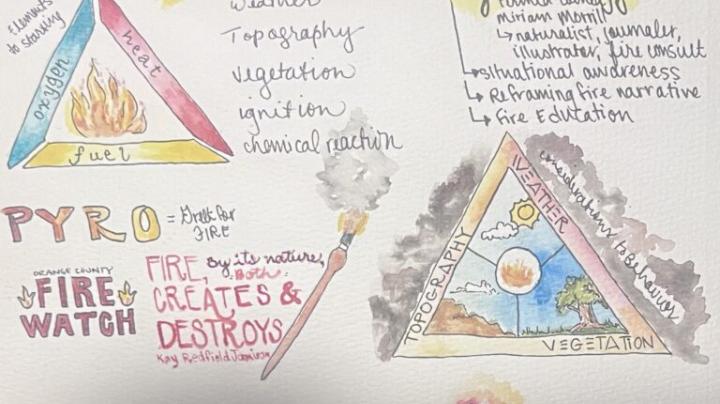 Elements
to starting
oxygen
heat
fuel
Weather
Topography
Vegetation
ignition
chemical reaction
Miriam Morrill
↳ naturalist, journaler,
illustrator, fire consult
→ situational awareness
↳ Reframing fire narrative
↳ Fire Edutation
PYRO = Greek for
FIRE
ORANGE COUNTY
FIRE
WATCH
FIRE, By its nature,
Both
CREATES &
DESTROYS
Kay Redfield Jamison
TOPOGRAPHY
WEATHER
VEGETATION
considerations to Behaviors